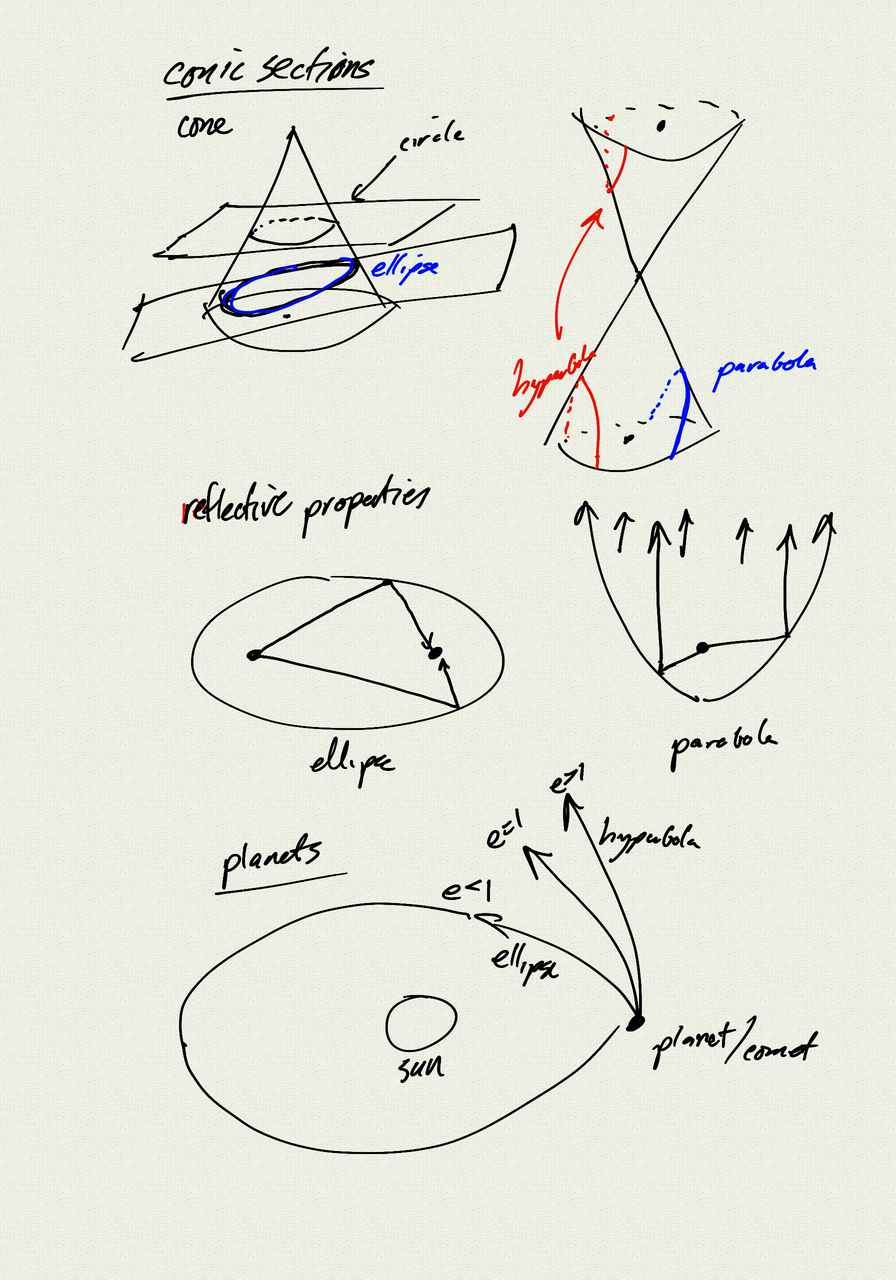 conic sections
cone
circle
ellipse
hyperbola
parabola
reflective properties
ellipse
parabola
planets
e>1
e=1
hyperbola
e<1
ellipse
sun
planet/comet